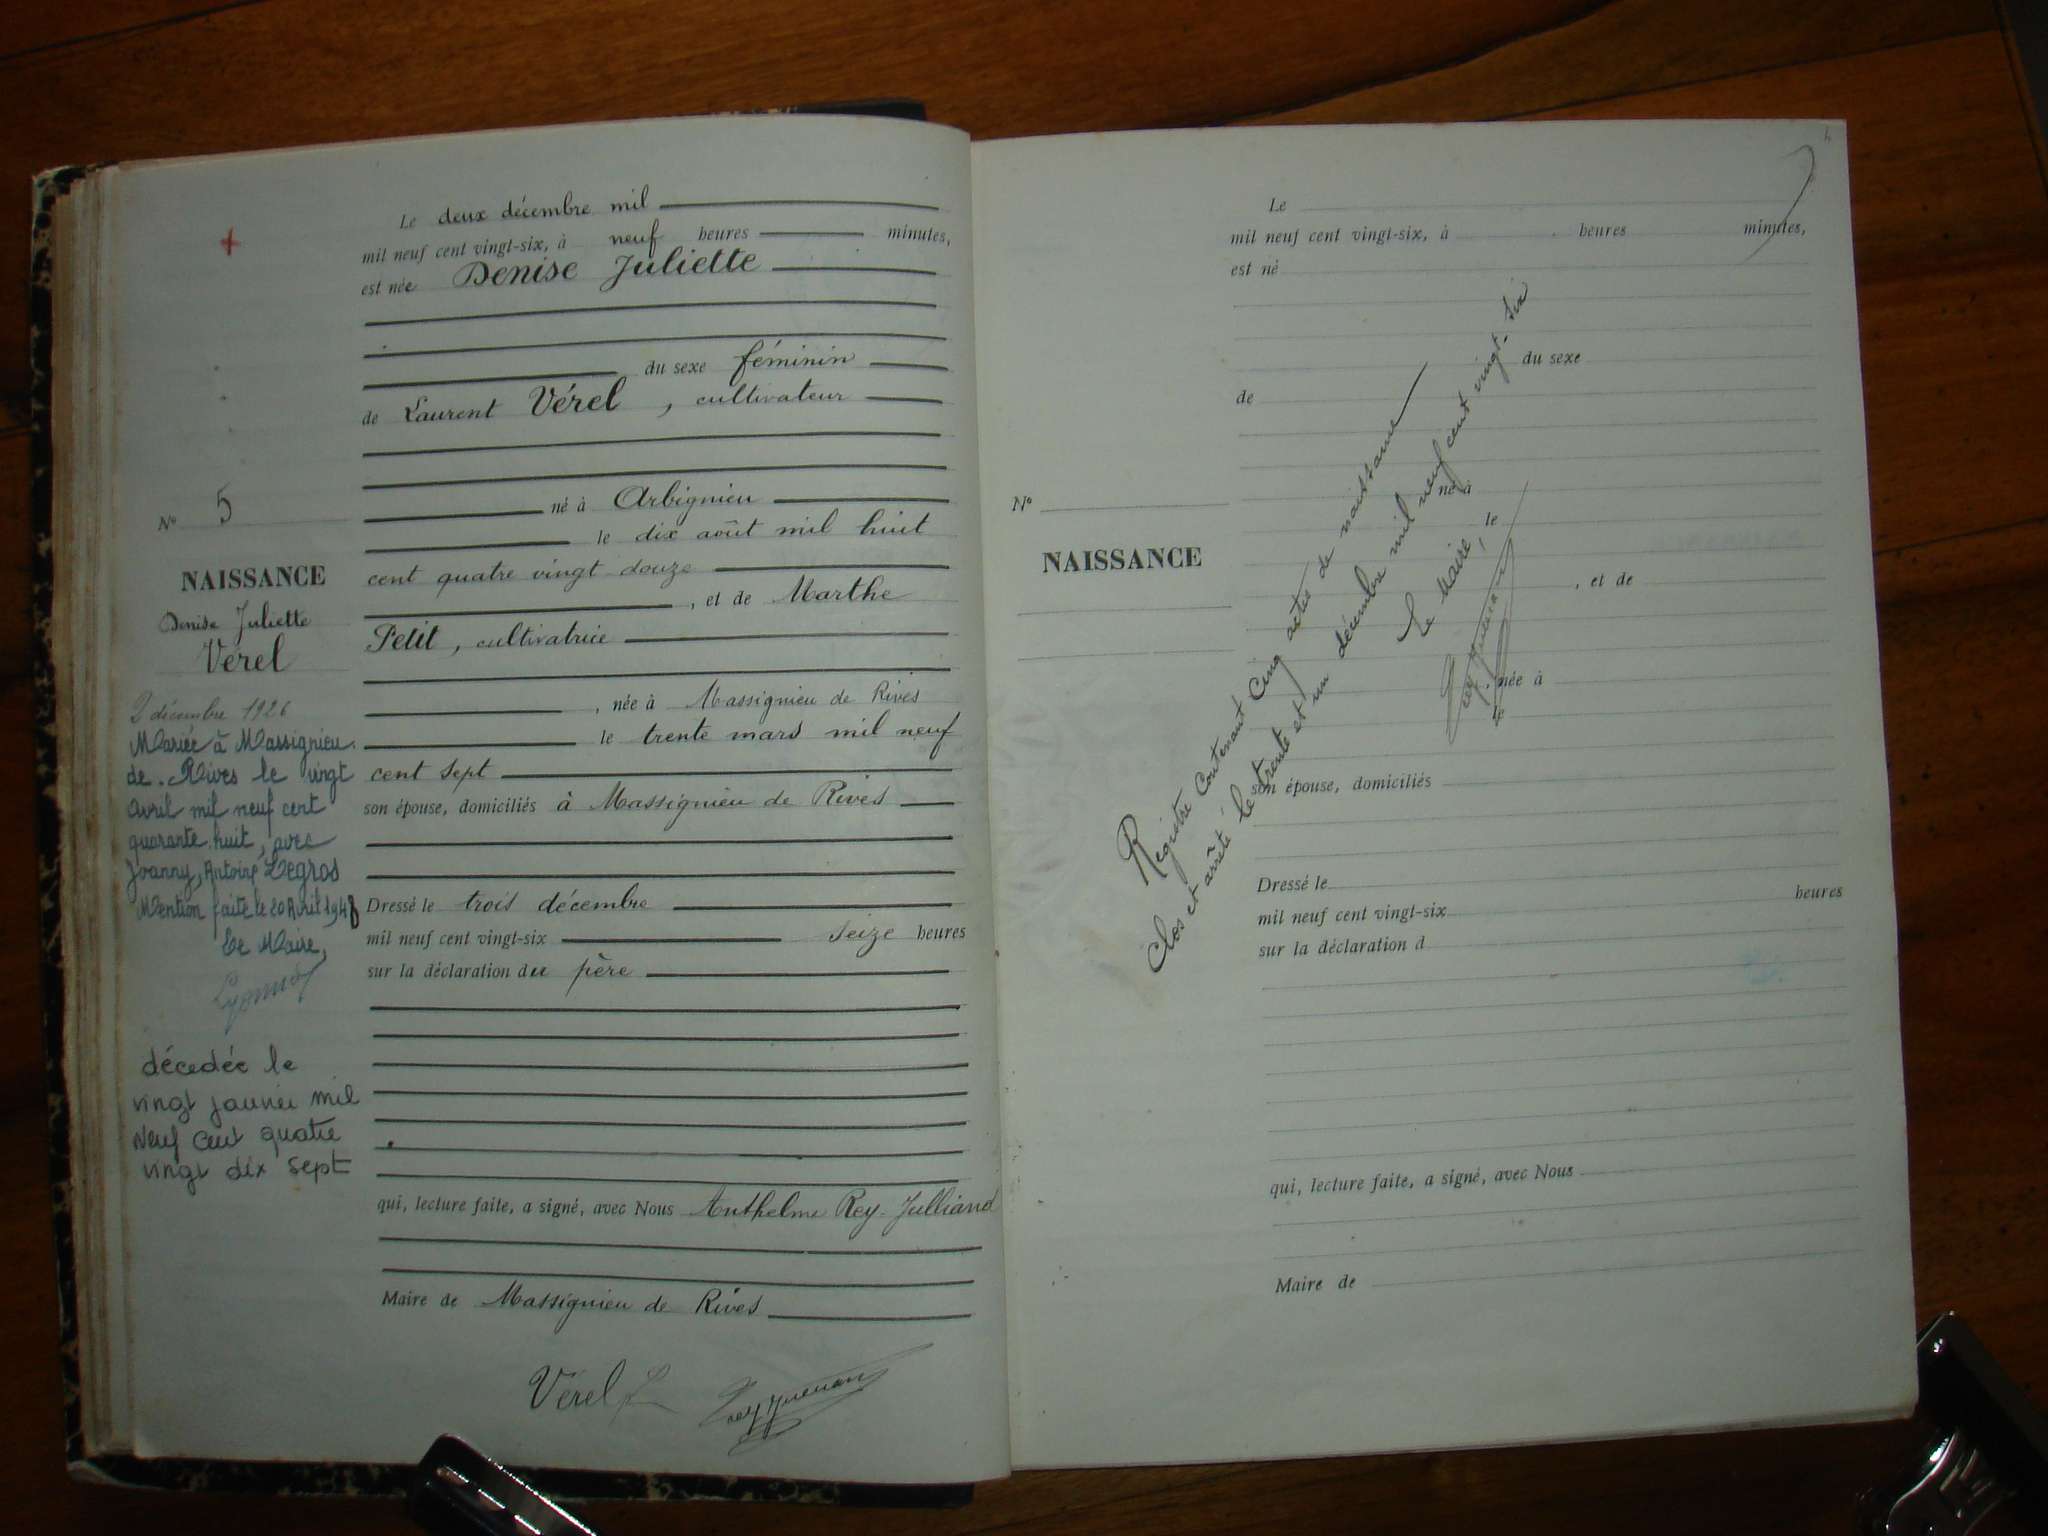 Le deux décembre mil
mil neuf cent vingt-six, à neuf heures minutes,
est née Denise Juliette
du sexe féminin
de Laurent Vérel, cultivateur
né à Arbignieu
le dix août mil huit
cent quatre vingt douze
, et de Marthe
Petit, cultivatrice
, née à Massignieu de Rives
le trente mars mil neuf
cent sept
son épouse, domiciliés à Massignieu de Rives
Dressé le trois décembre
mil neuf cent vingt-six seize heures
sur la déclaration du père
qui, lecture faite, a signé, avec Nous Anthelme Rey-Julliand
Maire de Massignieu de Rives
Vérel L
N° 5
NAISSANCE
Denise Juliette
Vérel
2 décembre 1926
Mariée à Massignieu
de Rives le vingt
avril mil neuf cent
quarante huit, avec
Joanny, Antoine Legros
Mention faite le 20 Avril 1948
Le Maire,
décedée le
vingt janvier mil
neuf cent quatre
vingt dix sept
4
Le
mil neuf cent vingt-six, à heures minutes,
est né
du sexe
de
né à
le
, et de
, née à
le
son épouse, domiciliés
Dressé le
mil neuf cent vingt-six heures
sur la déclaration d
qui, lecture faite, a signé, avec Nous
Maire de
N°
NAISSANCE
Registre Contenant Cinq actes de naissance
Clos et arrêté le trente et un décembre mil neuf cent vingt-six
Le Maire,